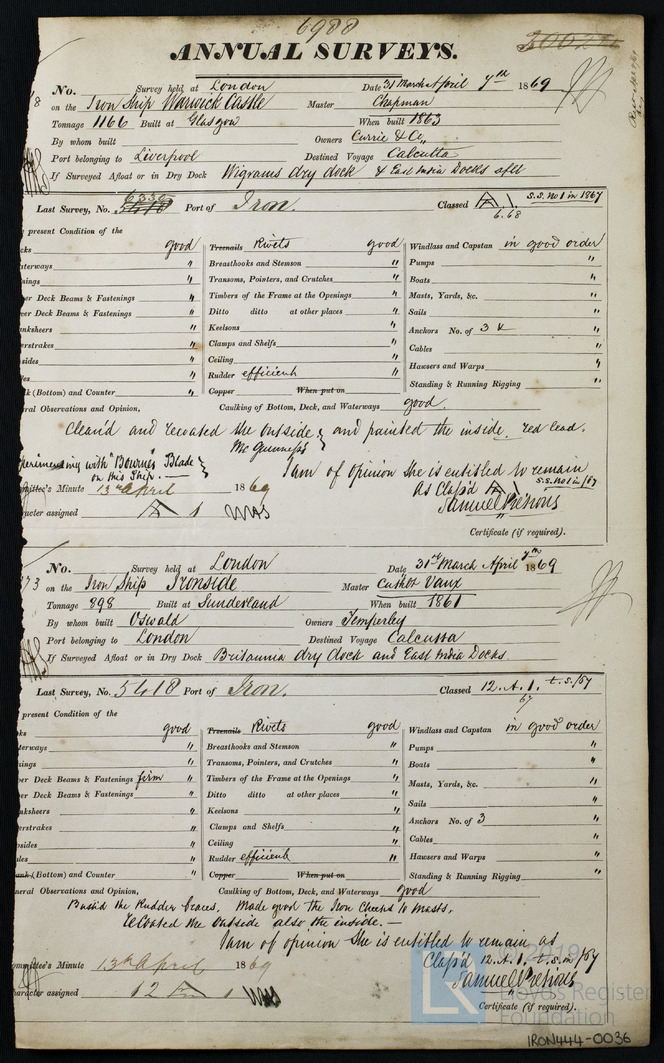 6988
ANNUAL SURVEYS.
No. Survey held at London Date 31 March April 7th 1869
on the Iron Ship Warwick Castle Master Chapman
Tonnage 1166 Built at Glasgow When built 1863
By whom built Owners Currie & Co
Port belonging to Liverpool Destined Voyage Calcutta
If Surveyed Afloat or in Dry Dock Wigrams dry dock & East India Docks aflt
Last Survey, No. 6336 Port of Iron. Classed A 1 S.S. No 1 in 1867
6.68
present Condition of the
good Treenails Rivets good Windlass and Capstan in good order
aterways " Breasthooks and Stemson " Pumps "
" Transoms, Pointers, and Crutches " Boats "
er Deck Beams & Fastenings " Timbers of the Frame at the Openings " Masts, Yards, &c. "
er Deck Beams & Fastenings " Ditto ditto at other places " Sails "
nksheers " Keelsons " Anchors No. of 3 & "
erstrakes " Clamps and Shelfs " Cables "
sides " Ceiling " Hawsers and Warps "
Rudder efficient Standing & Running Rigging "
(Bottom) and Counter " Copper When put on
ral Observations and Opinion, Caulking of Bottom, Deck, and Waterways good.
Clean'd and recoated the outside and painted the inside. red lead.
Mc Guiness's
perimenting with "Bownes" Blade
on this Ship.
I am of opinion she is entitled to remain
as Class'd A 1 S.S. No 1 in/67
mittee's Minute 13th April 1869
Samuel Pretious
racter assigned A 1
Certificate (if required).
No. Survey held at London Date 31st March April 7th 1869
73 on the Iron Ship Ironside Master Cuthbt Vaux
Tonnage 898 Built at Sunderland When built 1861
By whom built Oswald Owners Temperley
Port belonging to London Destined Voyage Calcutta
If Surveyed Afloat or in Dry Dock Britannia dry dock and East India Docks.
Last Survey, No. 5418 Port of Iron. Classed 12. A. 1. t.s./67
67
present Condition of the
good Treenails Rivets good Windlass and Capstan in good order
aterways " Breasthooks and Stemson " Pumps "
" Transoms, Pointers, and Crutches " Boats "
er Deck Beams & Fastenings firm " Timbers of the Frame at the Openings " Masts, Yards, &c. "
er Deck Beams & Fastenings " Ditto ditto at other places " Sails "
nksheers " Keelsons " Anchors No. of 3 "
erstrakes " Clamps and Shelfs " Cables "
sides " Ceiling " Hawsers and Warps "
Rudder efficient " Standing & Running Rigging "
(Bottom) and Counter " Copper When put on
neral Observations and Opinion, Caulking of Bottom, Deck, and Waterways good
Bush'd the Rudder braces. Made good the Iron Cheeks to Masts,
recoated the outside also the inside.
I am of opinion she is entitled to remain as
Class'd 12. A. 1. t.s. in/67
mmittee's Minute 13th April 1869
Samuel Pretious
aracter assigned 12 A 1
Certificate (if required).
© 2019
Lloyd's Register
Foundation
IRON444-0036